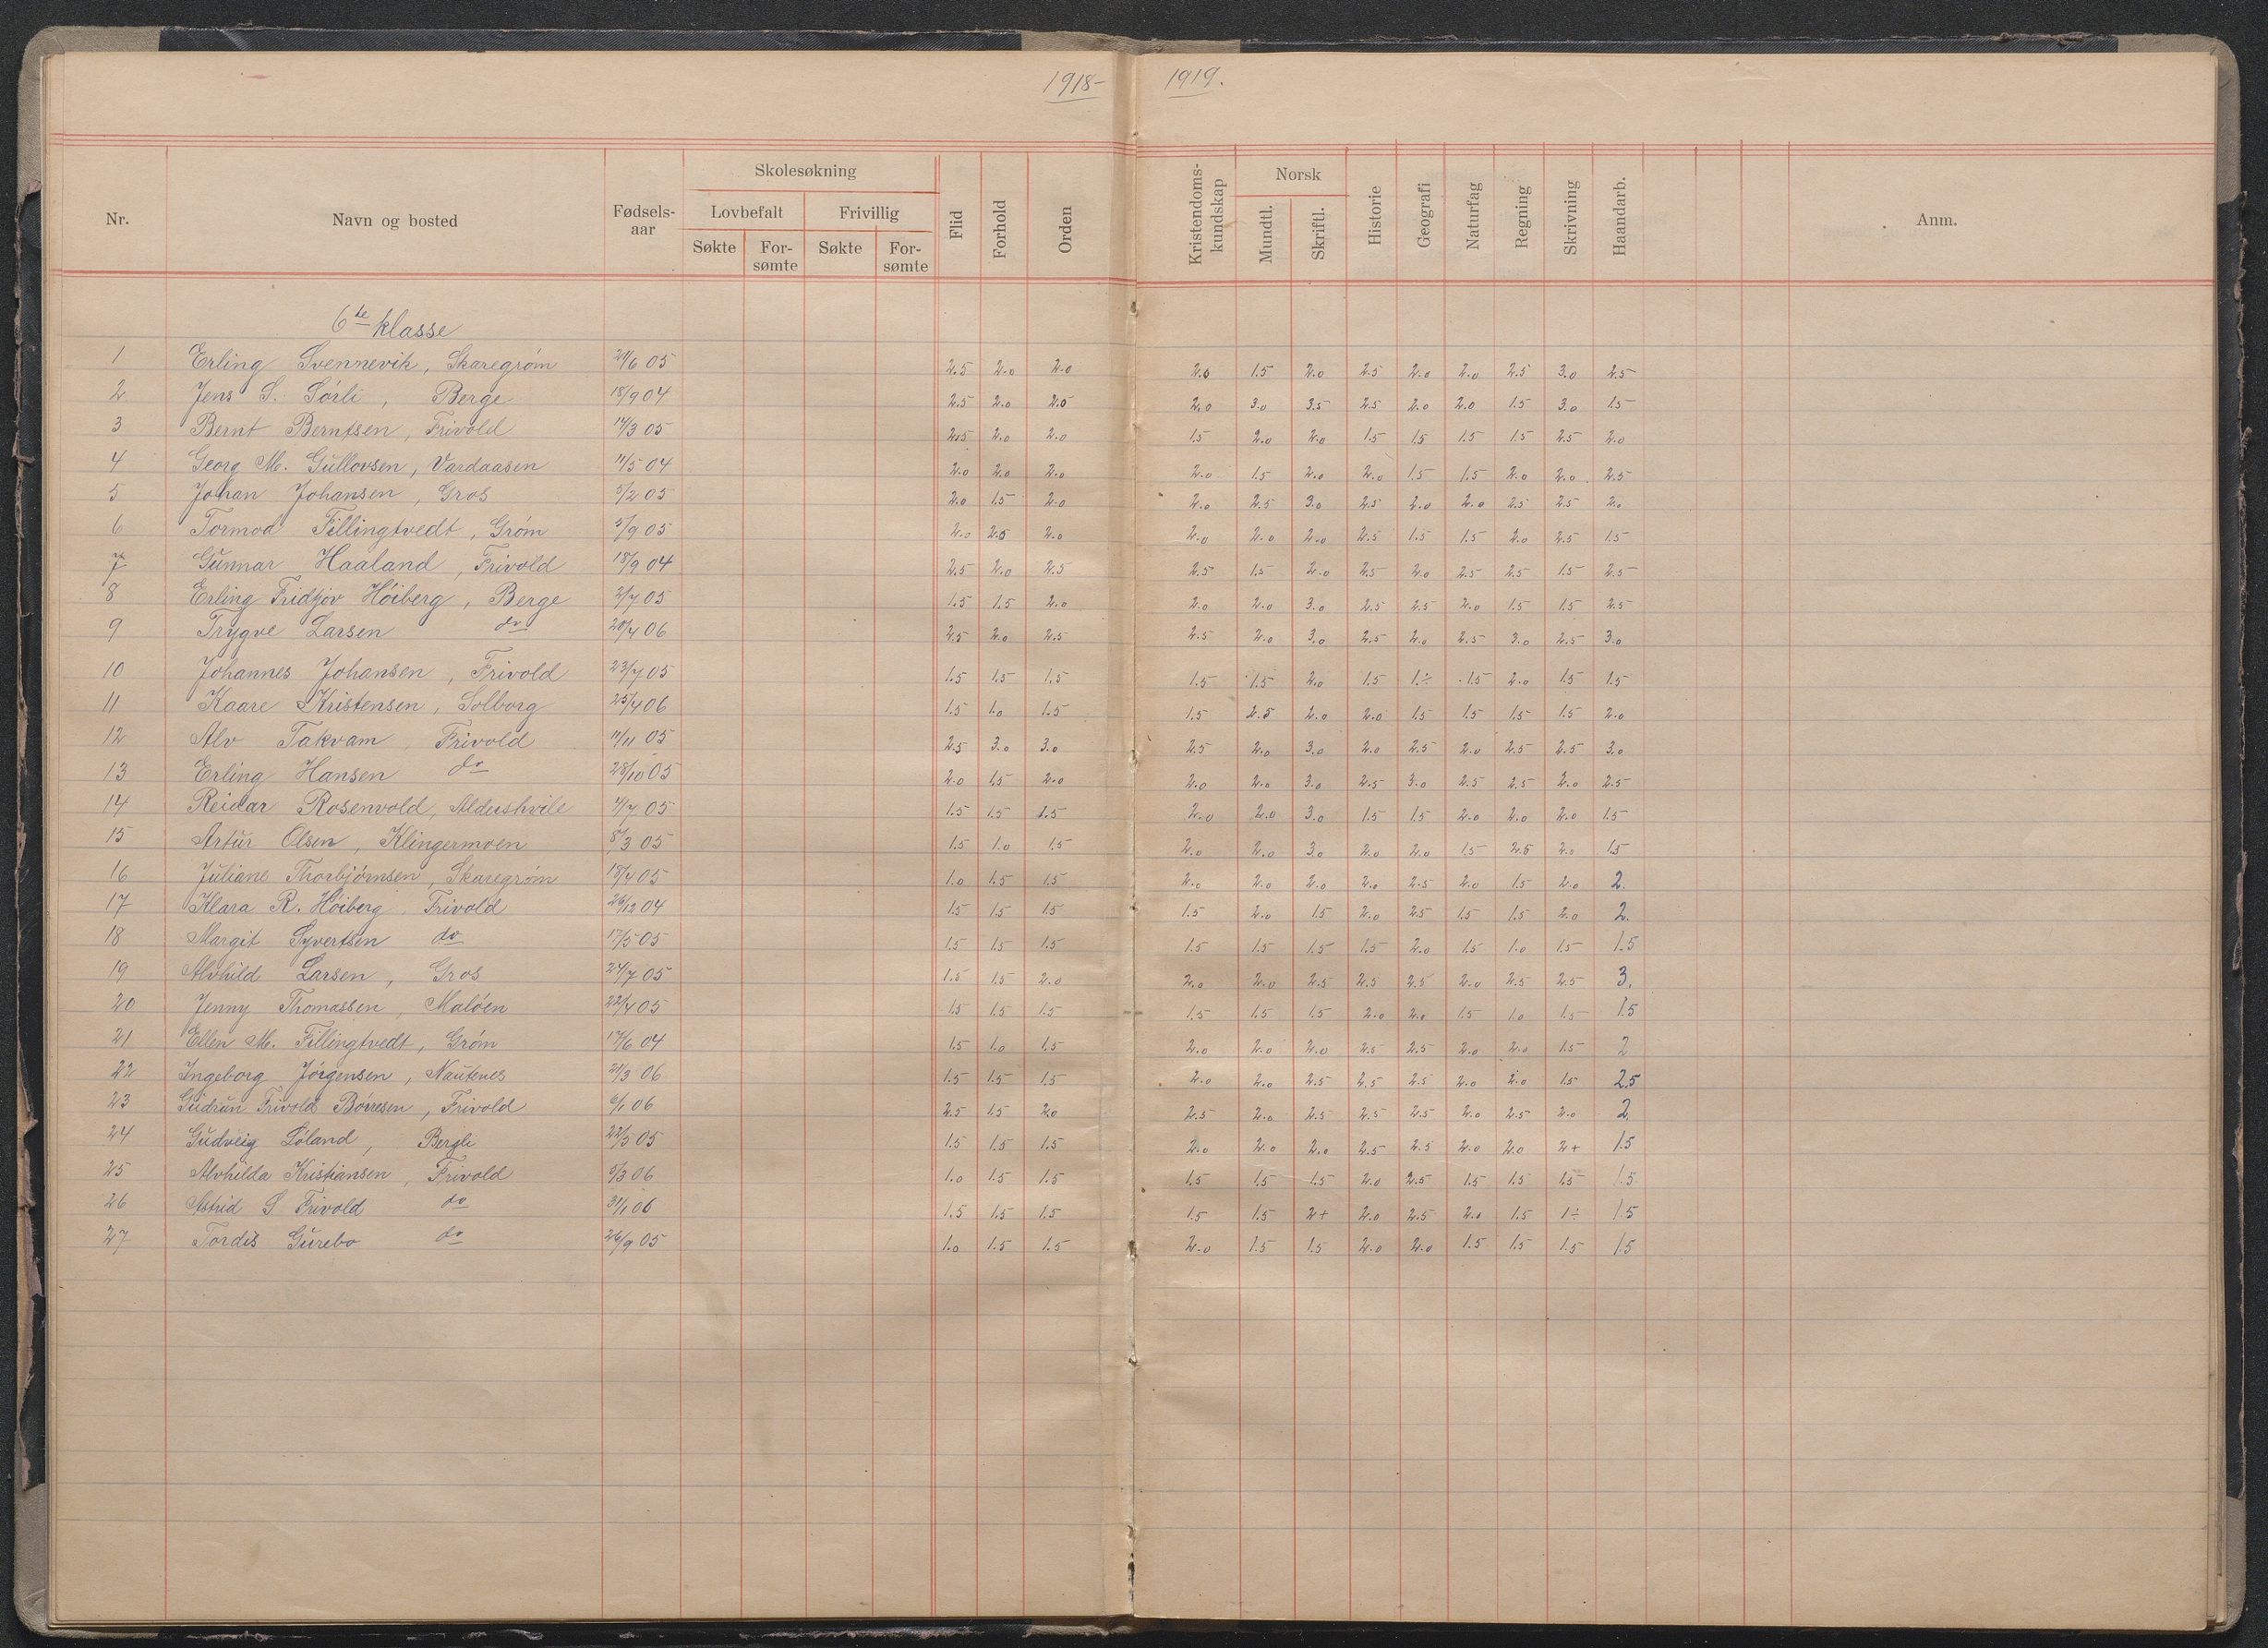 1918- 1919.
Nr. Navn og bosted Fødsels-aar Skolesøkning Lovbefalt Søkte For-sømte Frivillig Søkte For-sømte Flid Forhold Orden Kristendoms-kundskap Norsk Mundtl. Skriftl. Historie Geografi Naturfag Regning Skrivning Haandarb. Anm.
6te klasse
1 Erling Svennevik, Skaregrøm 6 05 2.5 2.0 2.0 2.0 1.5 2.0 2.5 2.0 2.0 2.5 3.0 2.5
2 Jens S. Sørli, Berge 18/9 04 2.5 2.0 2.0 2.0 3.0 3.5 2.5 2.0 2.0 1.5 3.0 1.5
3 Bernt Berntsen, Frivold 14/3 05 2.5 2.0 2.0 1.5 2.0 2.0 1.5 1.5 1.5 1.5 2.5 2.0
4 Georg M. Gullovsen, Vardaasen 11/5 04 2.0 2.0 2.0 2.0 1.5 2.0 2.0 1.5 1.5 2.0 2.0 2.5
5 Johan Johansen, Gros 5/2 05 2.0 1.5 2.0 2.0 2.5 3.0 2.5 2.0 2.0 2.5 2.5 2.0
6 Tormod Fillingtvedt, Grøm 5/9 05 2.0 2.5 2.0 2.0 2.0 2.0 2.5 1.5 1.5 2.0 2.5 1.5
7 Gunnar Haaland, Frivold 18/9 04 2.5 2.0 2.5 2.5 1.5 2.0 2.5 2.0 2.5 2.5 1.5 2.5
8 Erling Fridtjov Høiberg, Berge 2/7 05 1.5 1.5 2.0 2.0 2.0 3.0 2.5 2.5 2.0 1.5 1.5 2.5
9 Trygve Larsen do 20/4 06 2.5 2.0 2.5 2.5 2.0 3.0 2.5 2.0 2.5 3.0 2.5 3.0
10 Johannes Johansen, Frivold 23/7 05 1.5 1.5 1.5 1.5 1.5 2.0 1.5 1.÷ 1.5 2.0 1.5 1.5
11 Kaare Kristensen, Solborg 25/4 06 1.5 1.0 1.5 1.5 2.5 2.0 2.0 1.5 1.5 1.5 1.5 2.0
12 Alv Takvam, Frivold 11/11 05 2.5 3.0 3.0 2.5 2.0 3.0 2.0 2.5 2.0 2.5 2.5 3.0
13 Erling Hansen do 28/10 05 2.0 1.5 2.0 2.0 2.0 3.0 2.5 3.0 2.5 2.5 2.0 2.5
14 Reidar Rosenvold, Aldershvile 4/7 05 1.5 1.5 1.5 2.0 2.0 3.0 1.5 1.5 2.0 2.0 2.0 1.5
15 Artur Olsen, Klingermoen 8/3 05 1.5 1.0 1.5 2.0 2.0 3.0 2.0 2.0 1.5 2.5 2.0 1.5
16 Juliane Thorbjørnsen, Skaregrøm 18/4 05 1.0 1.5 1.5 2.0 2.0 2.0 2.0 2.5 2.0 1.5 2.0 2.
17 Klara R. Høiberg, Frivold 26/12 04 1.5 1.5 1.5 1.5 2.0 1.5 2.0 2.5 1.5 1.5 2.0 2.
18 Margit Syvertsen do 17/5 05 1.5 1.5 1.5 1.5 1.5 1.5 1.5 2.0 1.5 1.0 1.5 1.5
19 Alvhild Larsen, Gros 24/7 05 1.5 1.5 2.0 2.0 2.0 2.5 2.5 2.5 2.0 2.5 2.5 3.
20 Jenny Thomassen, Maløen 22/4 05 1.5 1.5 1.5 1.5 1.5 1.5 2.0 2.0 1.5 1.0 1.5 1.5
21 Ellen M. Fillingtvedt, Grøm 17/6 04 1.5 1.0 1.5 2.0 2.0 2.0 2.5 2.5 2.0 2.0 1.5 2
22 Ingeborg Jørgensen, 21/3 06 1.5 1.5 1.5 2.0 2.0 2.5 2.5 2.5 2.0 2.0 1.5 2.5
23 Gudrun Frivold Børresen, Frivold 6/1 06 2.5 1.5 2.0 2.5 2.0 2.5 2.5 2.5 2.0 2.5 2.0 2
24 Gudveig Løland, Bergli 22/5 05 1.5 1.5 1.5 2.0 2.0 2.0 2.5 2.5 2.0 2.0 2+ 1.5
25 Alvhilda Kristiansen, Frivold 5/3 06 1.0 1.5 1.5 1.5 1.5 1.5 2.0 2.5 1.5 1.5 1.5 1.5
26 Astrid S Frivold do 31/1 06 1.5 1.5 1.5 1.5 1.5 2+ 2.0 2.5 2.0 1.5 1÷ 1.5
27 Tordis Gurebo do 26/9 05 1.0 1.5 1.5 2.0 1.5 1.5 2.0 2.0 1.5 1.5 1.5 1.5